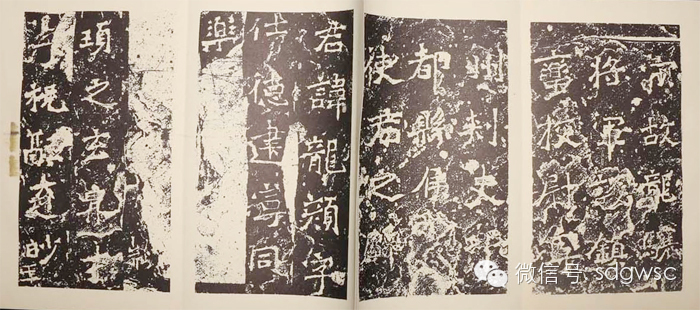 宋故龍驤
將軍護鎮
蠻校尉寧
州刺史邛
都縣侯
使君之碑
君諱龍顏字
仕德建寧同
樂
頊之玄冑才
祝融之眇
微信号: sdgwsc